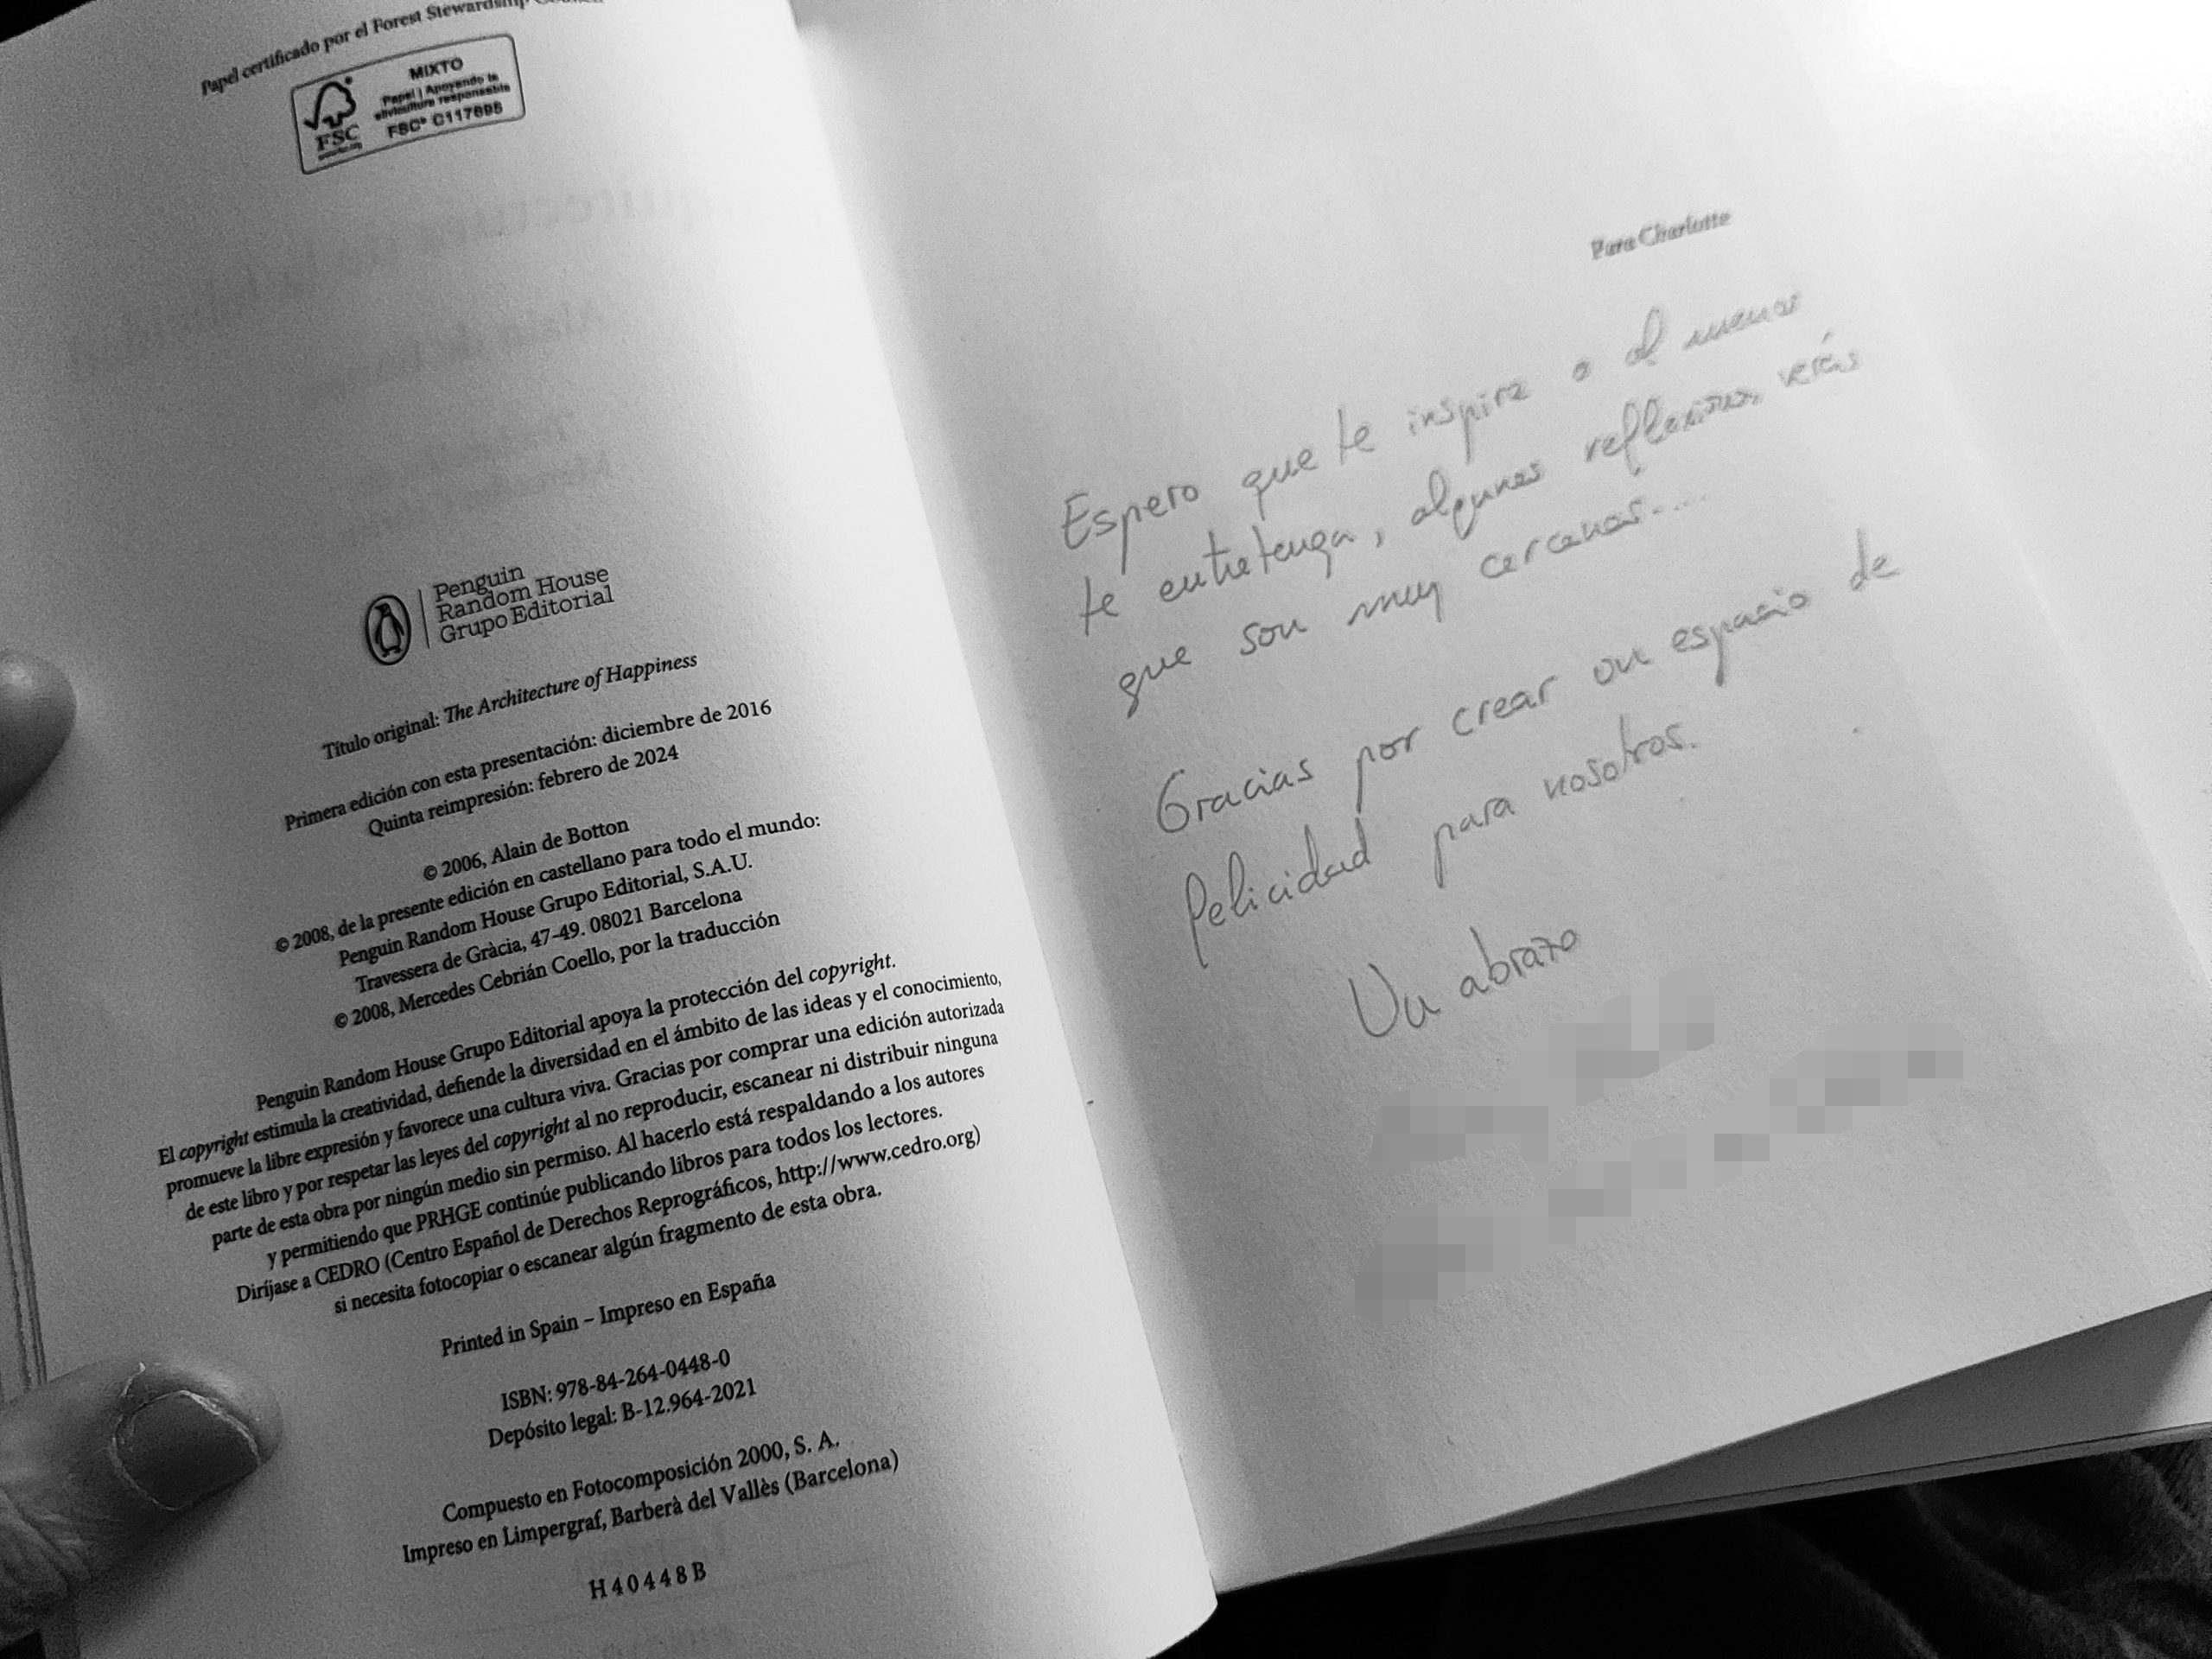 Papel certificado por el Forest Stewardship
MIXTO
Papel | Apoyando la
silvicultura responsable
FSC® C117695
FSC
Penguin
Random House
Grupo Editorial
Título original: The Architecture of Happiness
Primera edición con esta presentación: diciembre de 2016
Quinta reimpresión: febrero de 2024
© 2006, Alain de Botton
© 2008, de la presente edición en castellano para todo el mundo:
Penguin Random House Grupo Editorial, S.A.U.
Travessera de Gràcia, 47-49. 08021 Barcelona
© 2008, Mercedes Cebrián Coello, por la traducción
Penguin Random House Grupo Editorial apoya la protección del copyright.
El copyright estimula la creatividad, defiende la diversidad en el ámbito de las ideas y el conocimiento,
promueve la libre expresión y favorece una cultura viva. Gracias por comprar una edición autorizada
de este libro y por respetar las leyes del copyright al no reproducir, escanear ni distribuir ninguna
parte de esta obra por ningún medio sin permiso. Al hacerlo está respaldando a los autores
y permitiendo que PRHGE continúe publicando libros para todos los lectores.
Diríjase a CEDRO (Centro Español de Derechos Reprográficos, http://www.cedro.org)
si necesita fotocopiar o escanear algún fragmento de esta obra.
Printed in Spain – Impreso en España
ISBN: 978-84-264-0448-0
Depósito legal: B-12.964-2021
Compuesto en Fotocomposición 2000, S. A.
Impreso en Limpergraf, Barberà del Vallès (Barcelona)
H 4 0 4 4 8 B
Para Charlotte
Espero que te inspire o al menos
te entretenga, algunas reflexiones verás
que son muy cercanas....
Gracias por crear un espacio de
felicidad para nosotros.
Un abrazo